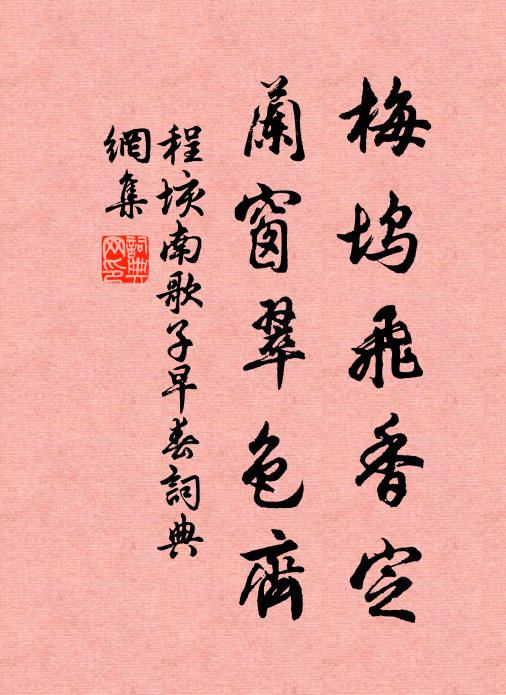 梅塢飛香定
蘭窗翠色齊
程垓南歌子早春詞典
網集
詞典網印